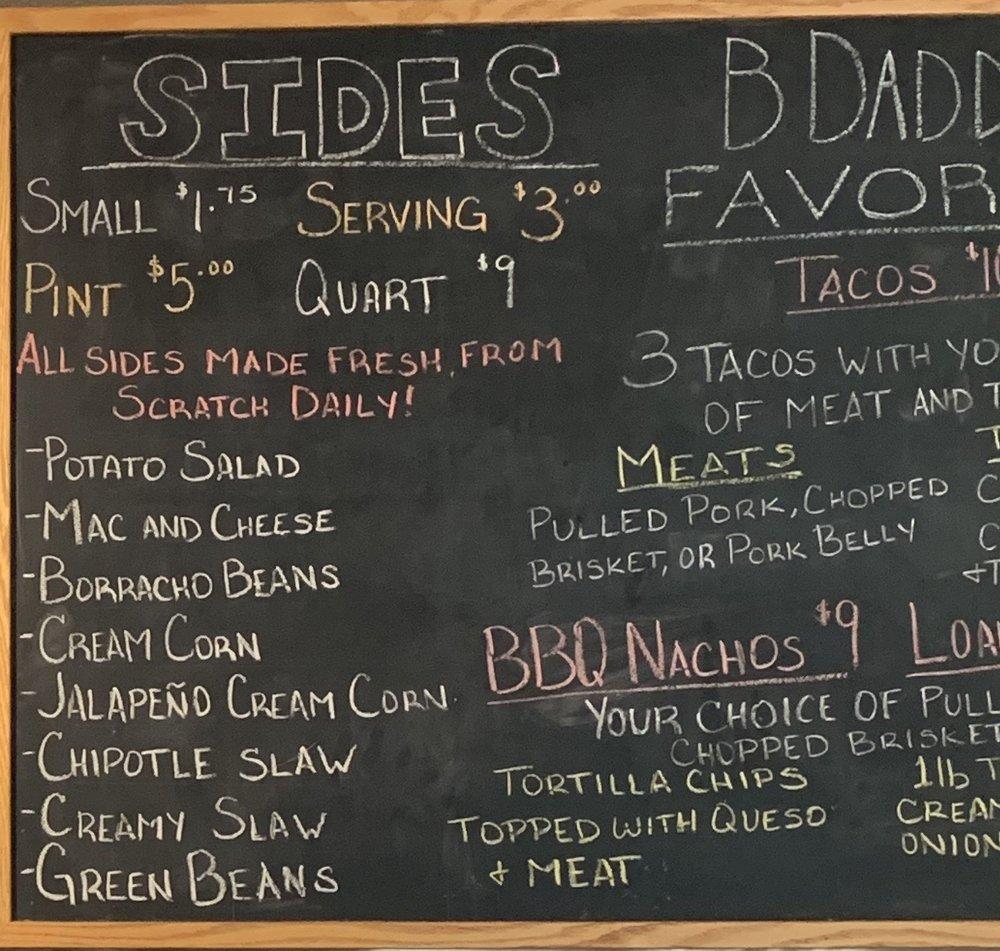 SIDES
SMALL $1.75 SERVING $3.00
PINT $5.00 QUART $9
ALL SIDES MADE FRESH, FROM
SCRATCH DAILY!
-POTATO SALAD
-MAC AND CHEESE
-BORRACHO BEANS
-CREAM CORN
-JALAPEÑO CREAM CORN
-CHIPOTLE SLAW
-CREAMY SLAW
-GREEN BEANS
B DADD
FAVOR
TACOS $10
3 TACOS WITH YO
OF MEAT AND T
MEATS
PULLED PORK, CHOPPED
BRISKET, OR PORK BELLY
BBQ NACHOS $9 LOA
YOUR CHOICE OF PULL
CHOPPED BRISKET
TORTILLA CHIPS
TOPPED WITH QUESO
+ MEAT
1lb T
CREAM
ONION